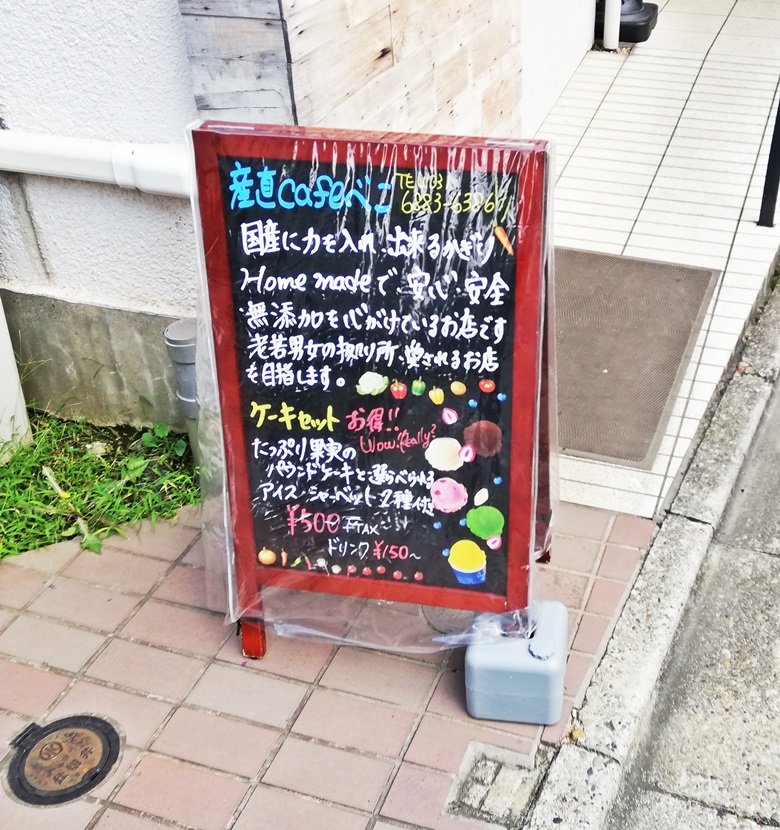 産直cafeべこ
TEL 03
国産に力を入れ、出来るかぎり
Home madeで 安心・安全
無添加を心がけているお店です
老若男女の拠り所、愛されるお店
を目指します。
ケーキセット お得!!
Wow. Really?
たっぷり果実の
パウンドケーキと選べられる
アイス・シャーベット 2種付き
¥500 +TAX
ドリンク ¥150〜